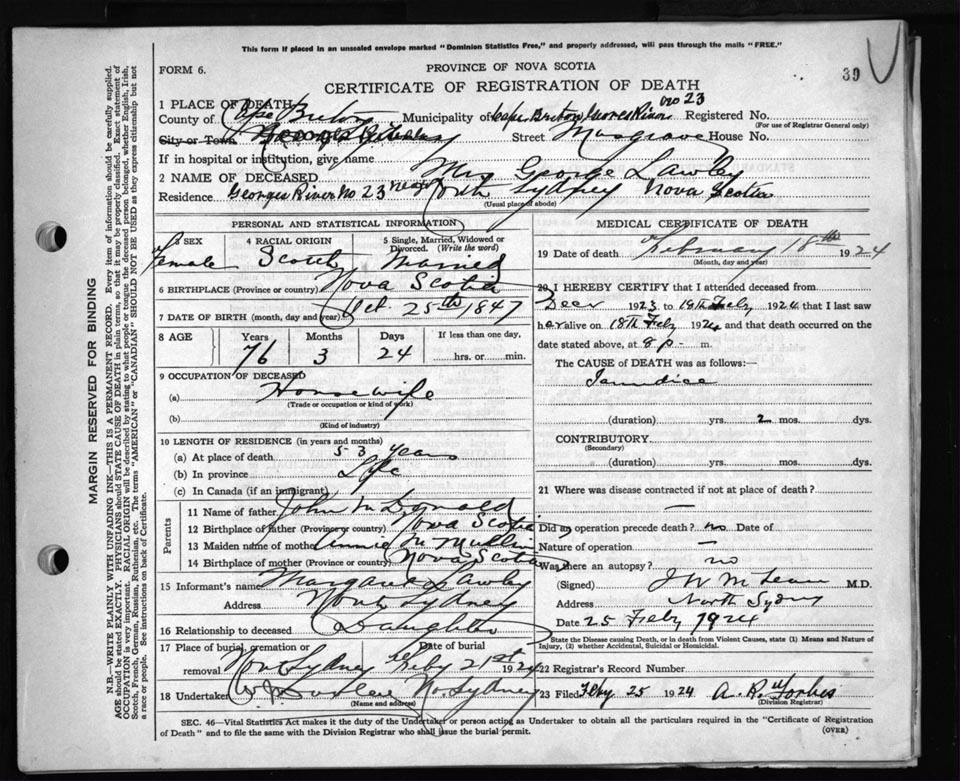 This form if placed in an unsealed envelope marked "Dominion Statistics Free," and properly addressed, will pass through the mails "FREE."
39
FORM 6.
PROVINCE OF NOVA SCOTIA
CERTIFICATE OF REGISTRATION OF DEATH
1 PLACE OF DEATH
no 23
County of Cape Breton Municipality of Cape Breton Georges River Registered No.
(For use of Registrar General only)
City or Town Georges River Street Musgrave House No.
If in hospital or institution, give name
2 NAME OF DECEASED Mrs George Lawley
Residence Georges River No 23 near North Sydney Nova Scotia
(Usual place of abode)
PERSONAL AND STATISTICAL INFORMATION
3 SEX 4 RACIAL ORIGIN 5 Single, Married, Widowed or Divorced. (Write the word)
Female Scotch Married
6 BIRTHPLACE (Province or country) Nova Scotia
7 DATE OF BIRTH (month, day and year) Oct. 25th 1847
8 AGE Years Months Days If less than one day,
76 3 24 hrs. or min.
9 OCCUPATION OF DECEASED
(a) Housewife
(Trade or occupation or kind of work)
(b)
(Kind of industry)
10 LENGTH OF RESIDENCE (in years and months)
(a) At place of death 53 years
(b) In province Life
(c) In Canada (if an immigrant)
Parents
11 Name of father John McDonald
12 Birthplace of father (Province or country) Nova Scotia
13 Maiden name of mother Annie McMullin
14 Birthplace of mother (Province or country) Nova Scotia
15 Informant's name Margaret Lawley
Address North Sydney
16 Relationship to deceased Daughter
17 Place of burial, cremation or removal North Sydney Date of burial Feby 21st 1924
18 Undertaker No. Sydney
(Name and address)
MEDICAL CERTIFICATE OF DEATH
19 Date of death February 18th 1924
(Month, day and year)
20 I HEREBY CERTIFY that I attended deceased from
Decr 1923 to 19th Feby 1924 that I last saw
her alive on 18th Feby 1924 and that death occurred on
date stated above, at 8 p m.
The CAUSE of DEATH was as follows:—
Jaundice
(duration) yrs. 2 mos. dys.
CONTRIBUTORY
(Secondary)
(duration) yrs. mos. dys.
21 Where was disease contracted if not at place of death?
—
Did an operation precede death? no Date of
Nature of operation —
Was there an autopsy? no
(Signed) J W McLean M.D.
Address North Sydney
Date 25 Feby 1924
State the Disease causing Death, or in death from Violent Causes, state (1) Means and Nature of Injury, (2) whether Accidental, Suicidal or Homicidal.
22 Registrar's Record Number
23 Filed Feby 25 1924 A. R. Forbes
(Division Registrar)
SEC. 46—Vital Statistics Act makes it the duty of the Undertaker or person acting as Undertaker to obtain all the particulars required in the "Certificate of Registration
of Death" and to file the same with the Division Registrar who shall issue the burial permit.
(OVER)
MARGIN RESERVED FOR BINDING
N.B.—WRITE PLAINLY WITH UNFADING INK—THIS IS A PERMANENT RECORD. Every item of information should be carefully supplied.
AGE should be stated EXACTLY. PHYSICIANS should STATE CAUSE OF DEATH in plain terms, so that it may be properly classified. Exact statement of
OCCUPATION is very important. RACIAL ORIGIN will be described by stating to what people or tongue the deceased person belonged, whether English, Irish,
Scotch, French, German, Russian, Ruthenian, etc. The terms "AMERICAN" or "CANADIAN" SHOULD NOT BE USED as they express citizenship but not
a race or people. See instructions on back of Certificate.